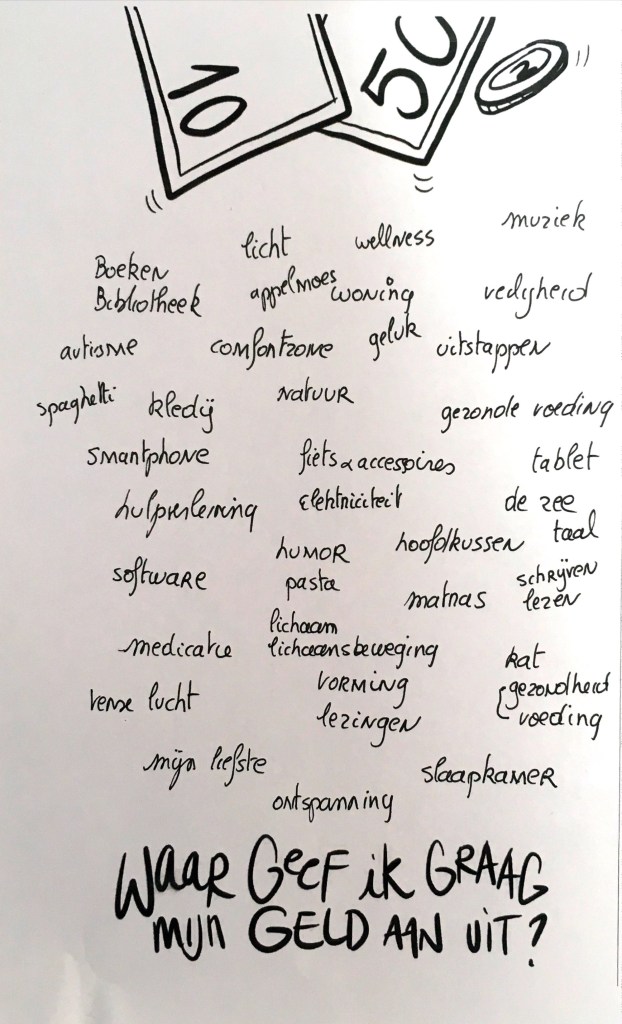 10
50
2
muziek
licht
wellness
Boeken
Bibliotheek
appelmoes
woning
veiligheid
autisme
comfortzone
geluk
uitstappen
spaghetti
kledij
Natuur
gezonde voeding
smartphone
fiets & accessoires
tablet
hulpverlening
elektriciteit
de zee
taal
humor
hoofdkussen
software
pasta
matras
schrijven
lezen
medicatie
lichaam
lichaamsbeweging
kat
verse lucht
vorming
lezingen
gezondheid
voeding
mijn liefste
slaapkamer
ontspanning
WAAR GEEF iK GRAAG
mijn GELD AAN UIT?